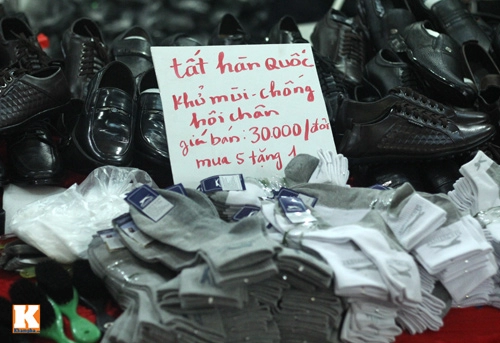 tất hàn Quốc
khử mùi - chống
hôi chân
giá bán: 30.000/đôi
mua 5 tặng 1
K